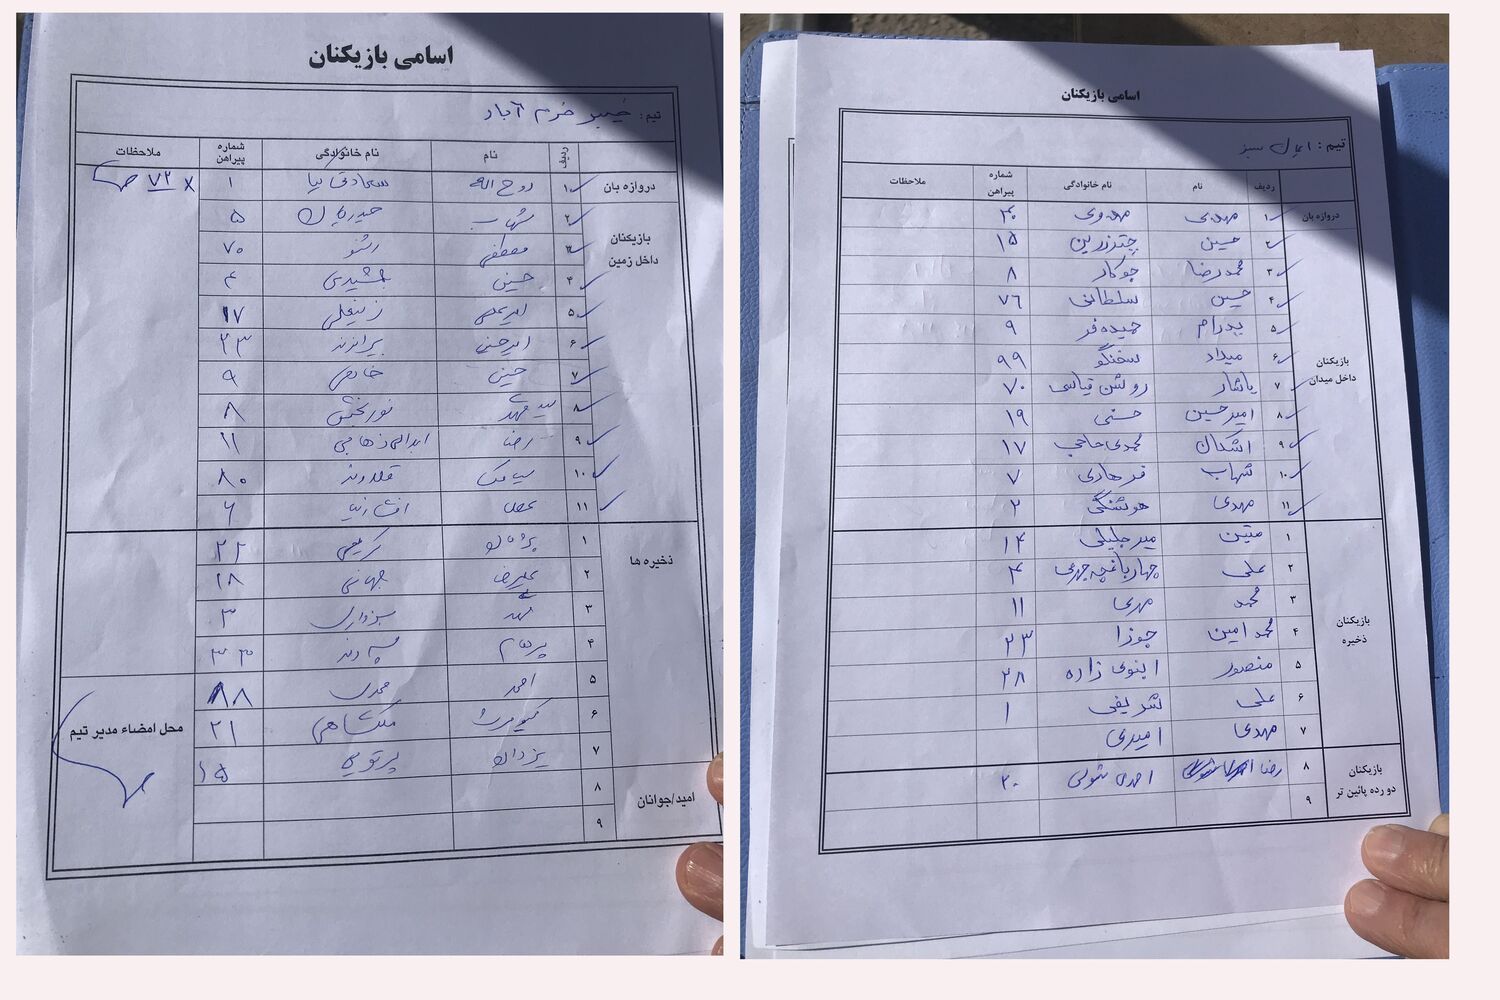 اسامی بازیکنان
تیم : خیبر خرم آباد
ردیف نام نام خانوادگی شماره پیراهن ملاحظات
دروازه بان ۱ روح اله سعادتی کیا ۱ × ۷۲
بازیکنان داخل زمین
۲ شهاب حیدریان ۵
۳ مصطفی رشنو ۷۰
۴ حسین جمشیدی ۴
۵ امیرعلی زینعلی ۱۷
۶ امیرحسین بیرانوند ۲۳
۷ حسین خادمی ۹
۸ سید مهدی نوربخش ۸
۹ رضا ۱۱
۱۰ سیامک قلاوند ۸۰
۱۱ افشارنیا ۶
ذخیره ها
۱ پژمان کریمی ۲۲
۲ علیرضا جهانی ۱۸
۳ سبزواری ۳
۴ پرهام سپه وند ۳۳
۵ احمد محمدی ۸۸
۶ کیومرث ملکشاهی ۲۱
۷ یزدان پرتویی ۱۵
امید/جوانان
۸
۹
محل امضاء مدیر تیم
اسامی بازیکنان
تیم : سبز
ردیف نام نام خانوادگی شماره پیراهن ملاحظات
دروازه بان ۱ مهدی مهدوی ۴۰
بازیکنان داخل میدان
۲ حسین چترزرین ۱۵
۳ محمدرضا جوکار ۸
۴ حسین سلطانی ۷۶
۵ پدرام حمیده فر ۹
۶ میلاد سخنگو ۹۹
۷ یاشار روشن قیاسی ۷۰
۸ امیرحسین حسنی ۱۹
۹ اشکان محمدی حاجی ۱۷
۱۰ شهاب فرهادی ۷
۱۱ مهدی هوشنگی ۲
بازیکنان ذخیره
۱ متین میرجلیلی ۱۴
۲ علی چهارباغچه چهری ۴
۳ محمد مهدی ۱۱
۴ محمد امین جوزا ۲۳
۵ منصور ابنوی زاده ۲۸
۶ علی شریفی ۱
۷ مهدی امیری
بازیکنان دو رده پائین تر
۸ رضا احمدی شولی ۲۰
۹